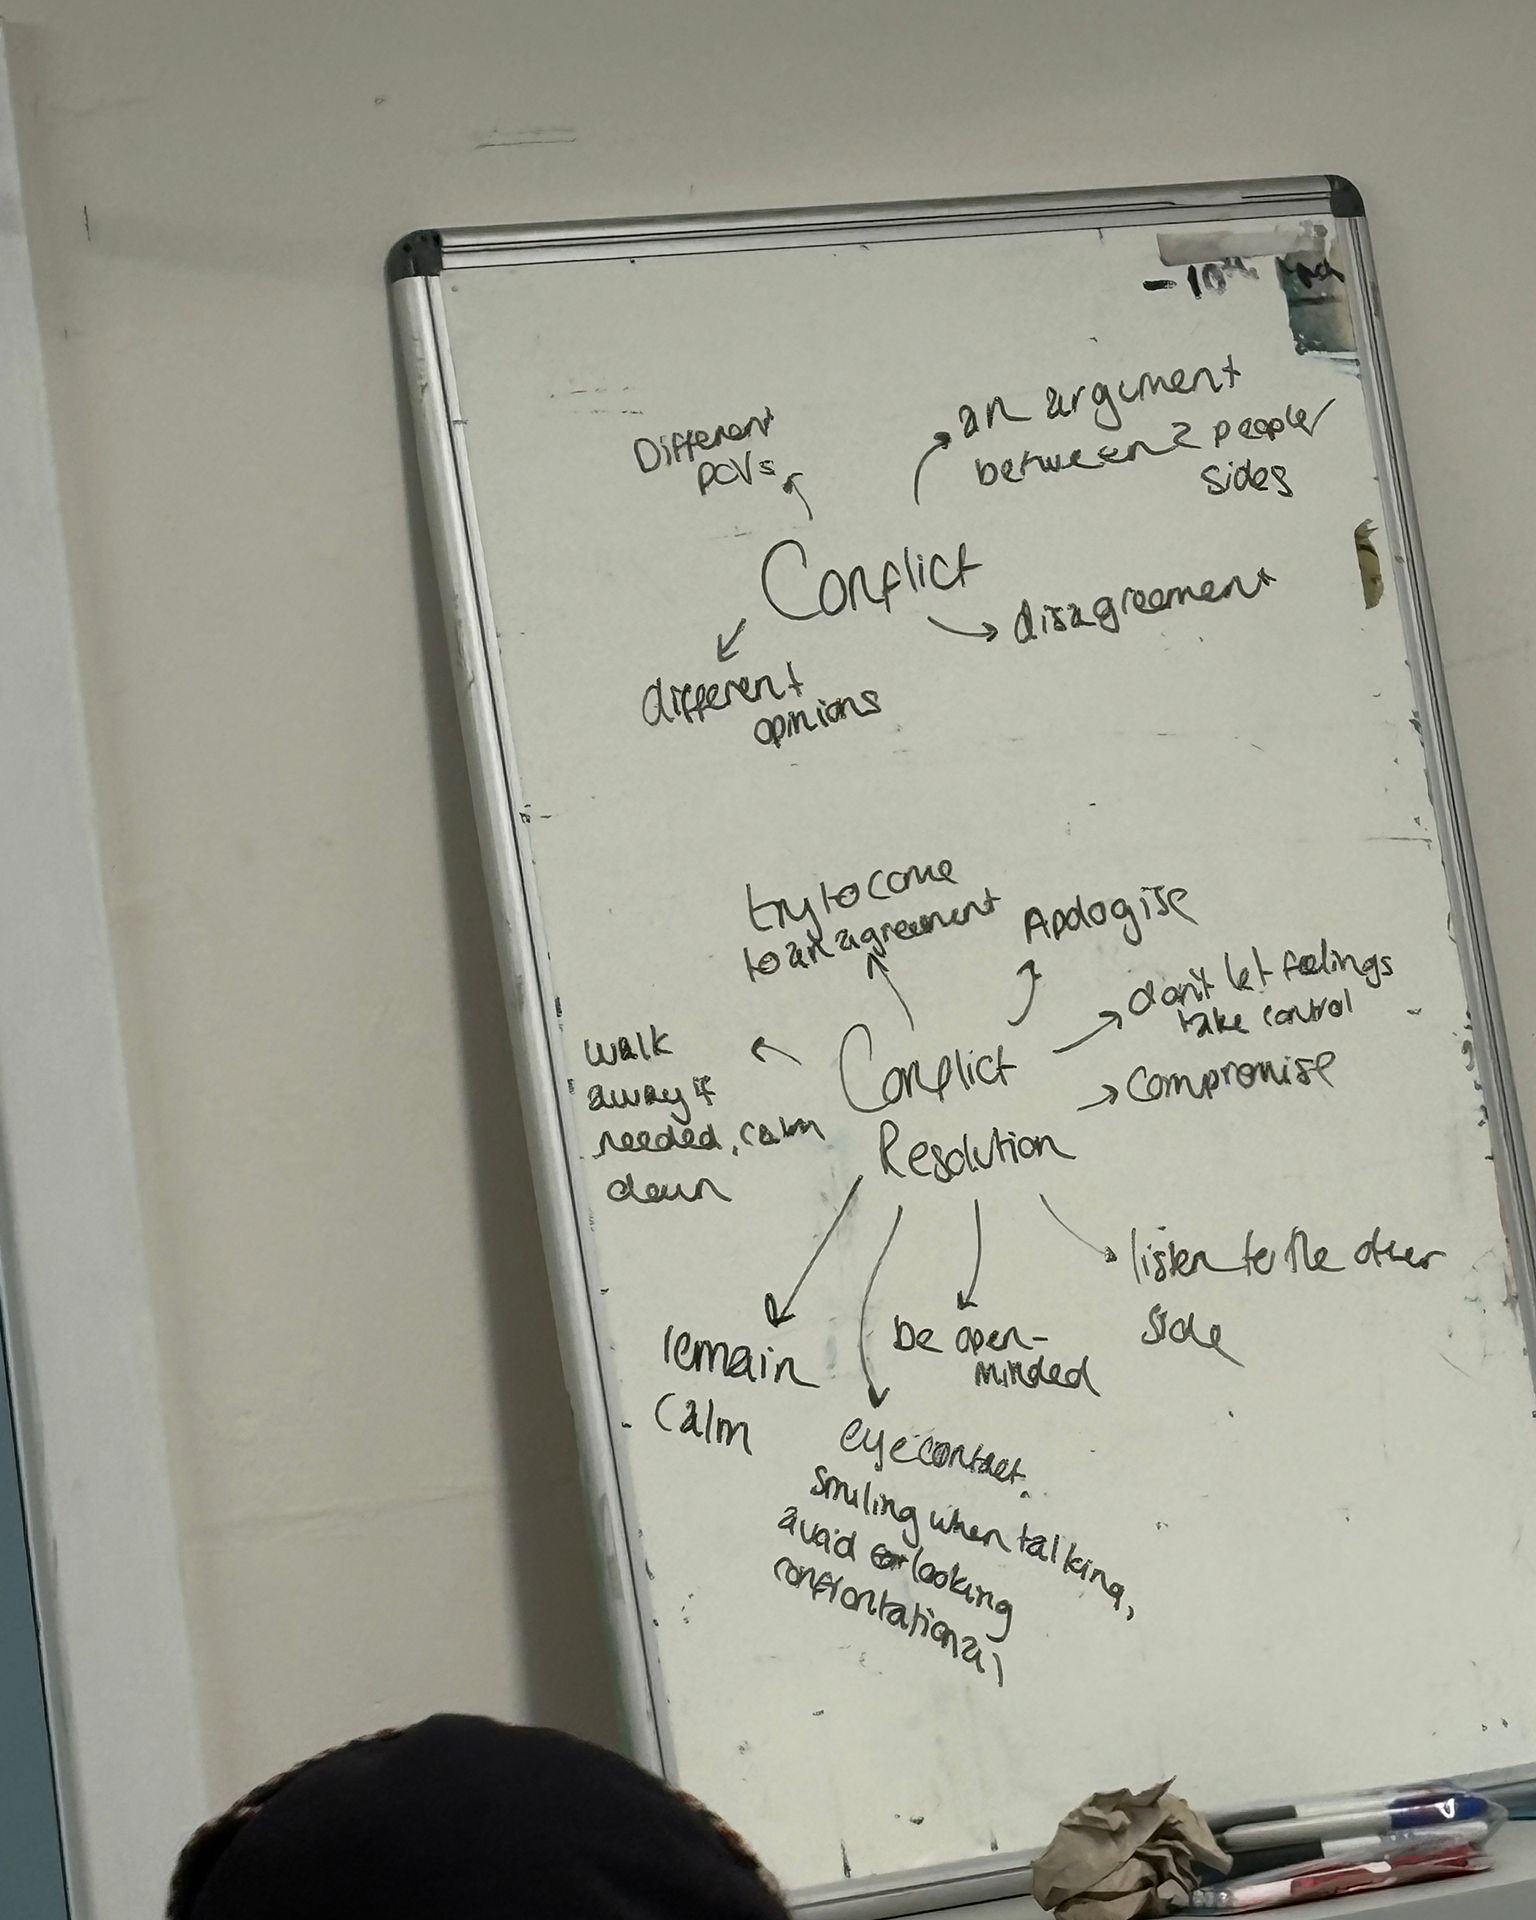 - 10th
Different
POVs
an argument
between 2 people/
sides
Conflict
disagreement
different
opinions
try to come
to an agreement
Apologise
don't let feelings
take control
walk
away if
needed, calm
down
Conflict
Resolution
compromise
listen to the other
side
remain
calm
be open-
minded
eye contact.
smiling when talking,
avoid looking
confrontational